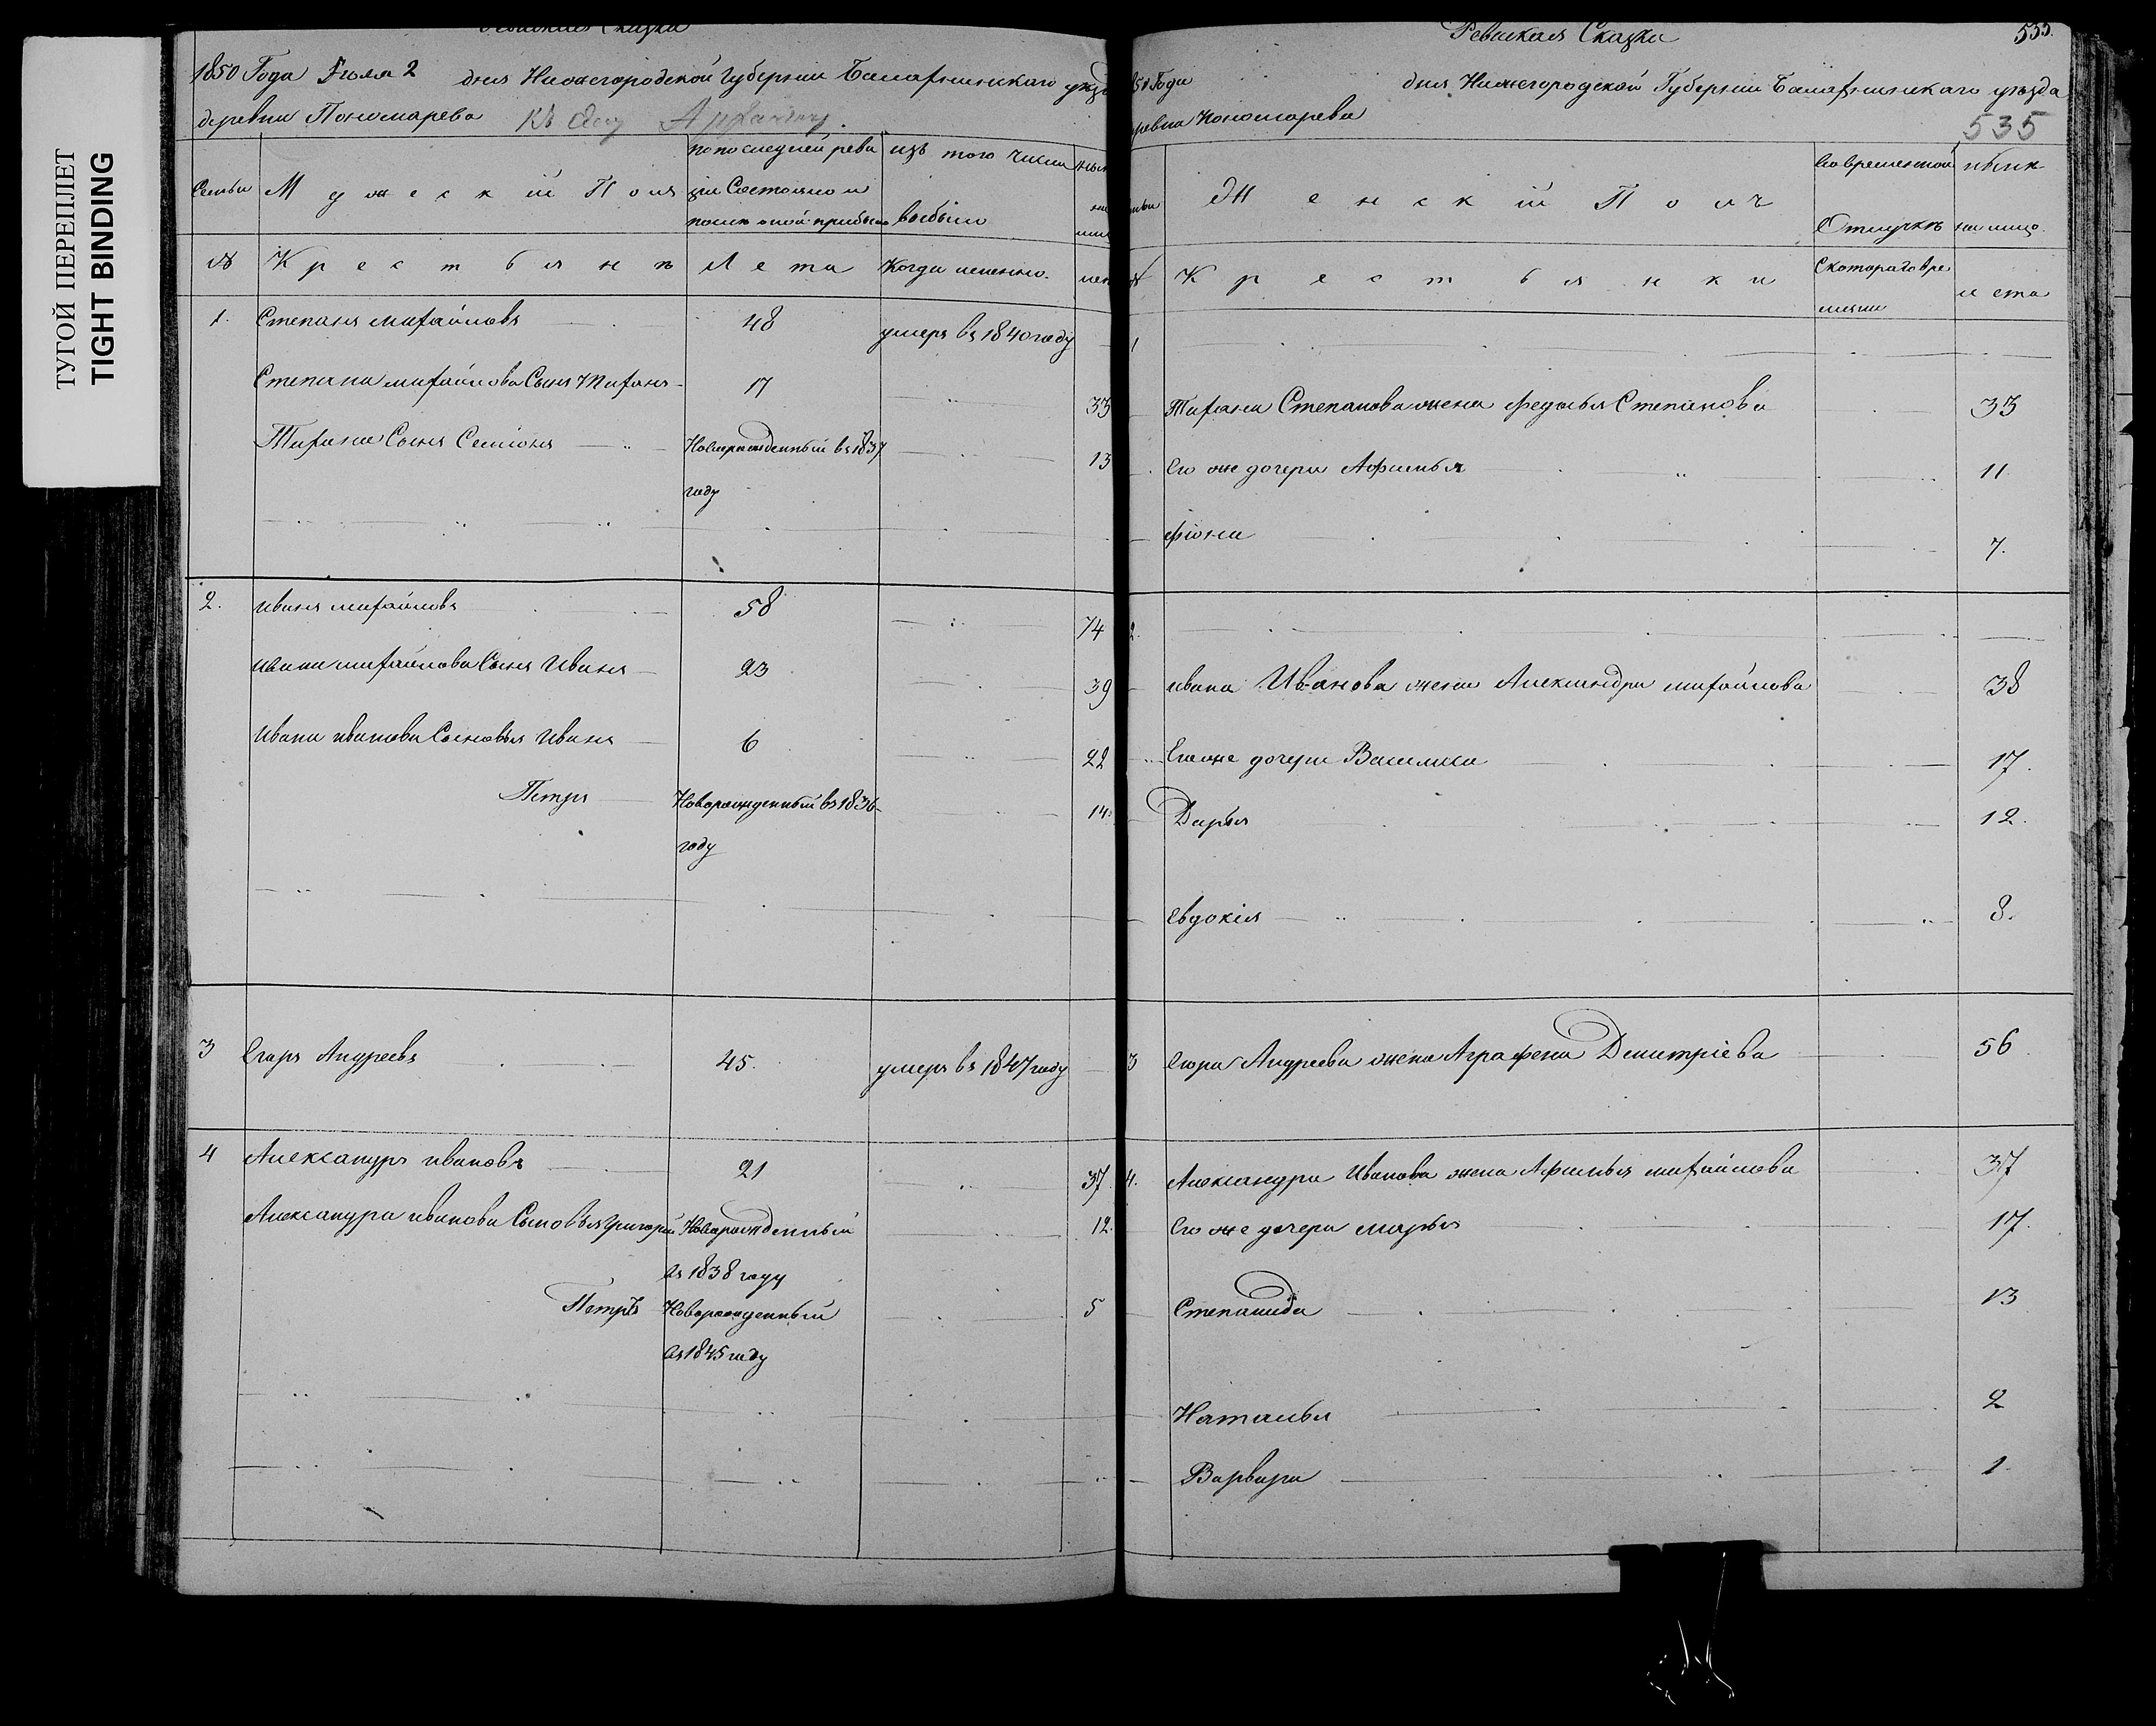 ТУГОЙ ПЕРЕПЛЕТ
TIGHT BINDING
Ревиская Сказка
1850 Года Июля 2 дня Нижегородской Губернии Балахнинскаго уезд
деревни Пономарева Къ
Семьи
Мужеский Полъ
По последней реви
зии Состояло и
после оной прибыло
изъ того числа
выбыло
№
Крестьянъ
Лета
Когда именно.
1. Степанъ михайловъ 48 умеръ въ 1840 году
Степана михайлова Сынъ Тиханъ 17 33
Тихана Сынъ Семионъ Новорожденный въ 1837 13
году
2. иванъ михайловъ 58 74
ивана михайлова Сынъ Иванъ 23 39
Ивана иванова Сыновья Иванъ 6 22
Петръ Новорожденный въ 1836 14
году
3 Егоръ Андреевъ 45. умеръ въ 1847 году
4 Александръ ивановъ 21 37
Александра иванова Сыновья Григорий Новорожденный 12.
въ 1838 году
Петръ Новорожденный 5
въ 1845 году
Ревиская Сказка 535.
850 Года дня Нижегородской Губернии Балахнинскаго уезда
деревна Пономарева 535
Женский Полъ
Во временной
Отлучке
ныне
на лицо.
№
Крестьянки
С котораго вре
мяни
лета
1
Тихана Степанова жена Федосья Степанова 33
Его же дочери Афимья 11
Фиона 7.
2.
ивана Ивановa жена Александра михайлова 38
Его же дочери Василиса 17.
Дарья 12.
Евдокия 8.
3 Егора Андреева жена Аграфена Дмитриева 56
4. Александра Иванова жена Афимья михайлова 37
Его же дочери марья 17.
Степанида 13
Наталья 2
Варвара 1.